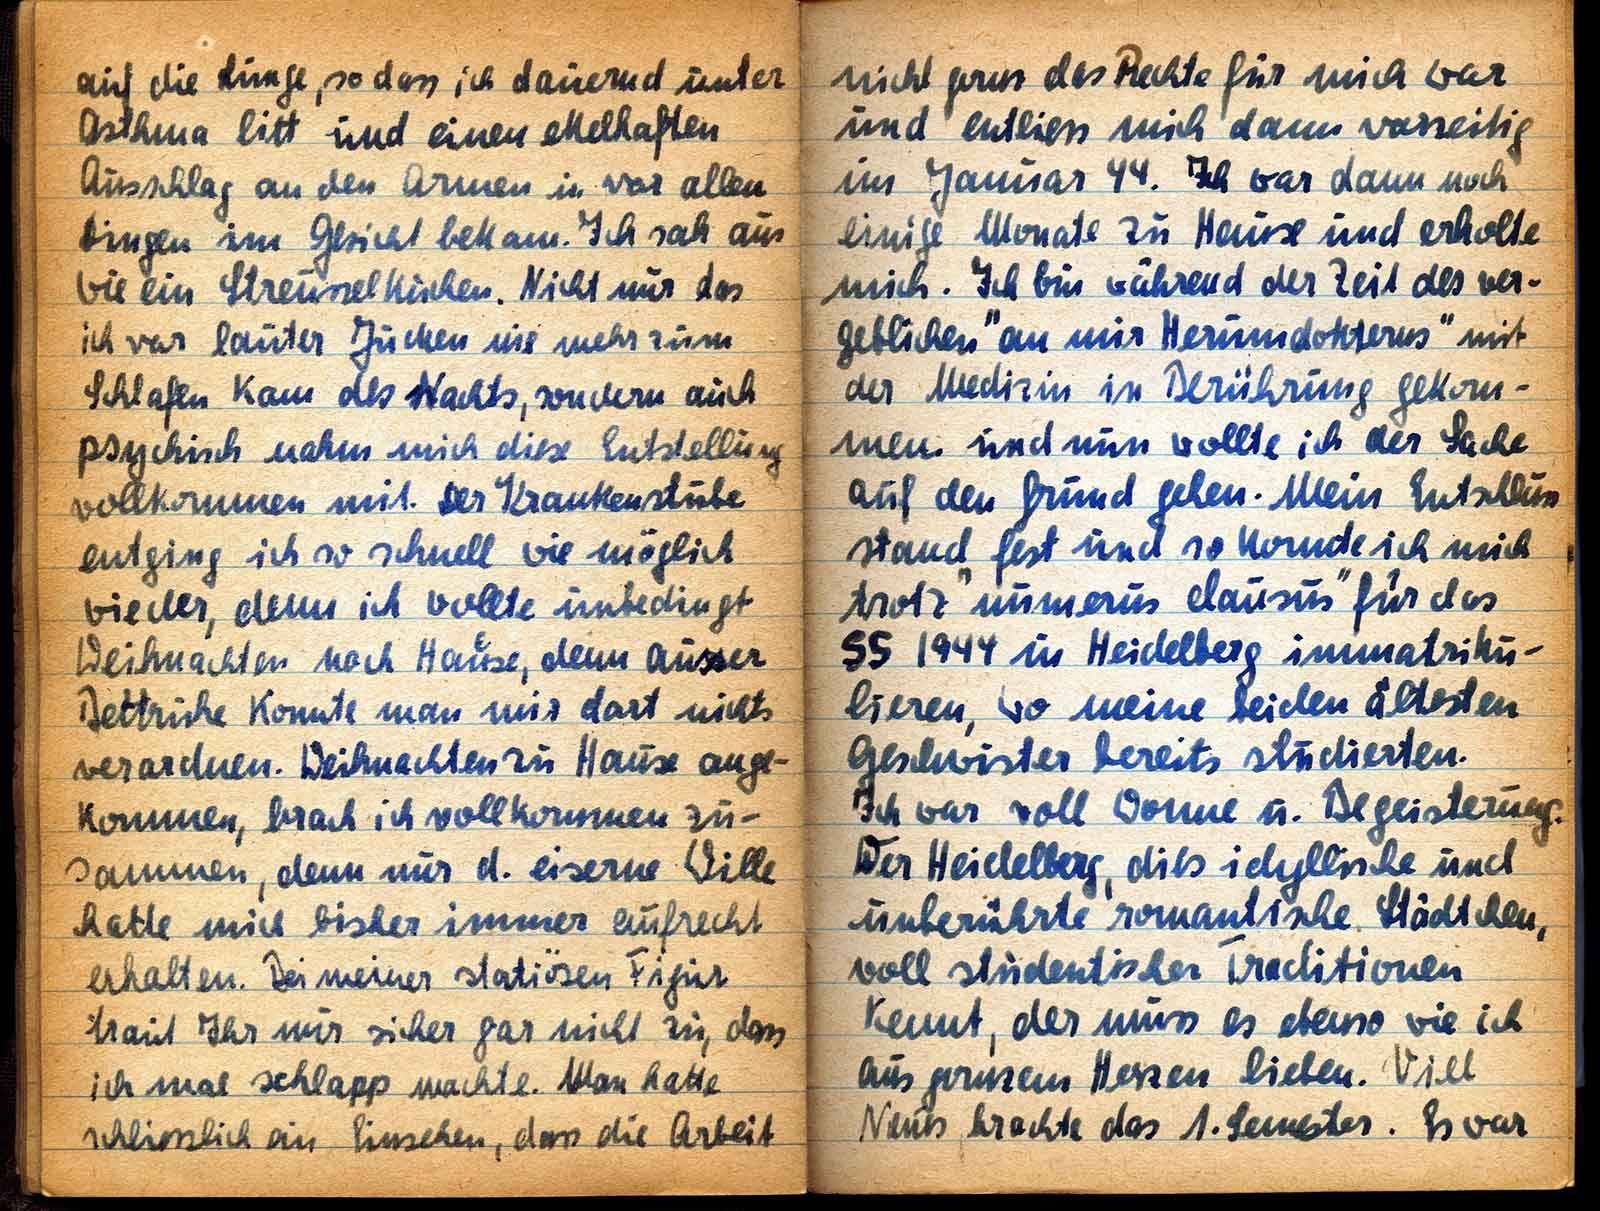 auf die Lunge, so dass ich dauernd unter
Asthma litt und einen ekelhaften
Ausschlag an den Armen u. vor allen
Dingen im Gesicht bekam. Ich sah aus
wie ein Streusselkuchen. Nicht nur das
ich vor lauter Jucken nie mehr zum
Schlafen kam des Nachts, sondern auch
psychisch nahm mich diese Entstellung
vollkommen mit. Der Krankenstube
entging ich so schnell wie möglich
wieder, denn ich wollte unbedingt
Weihnachten nach Hause, denn ausser
Bettruhe konnte man mir dort nichts
verordnen. Weihnachten zu Hause ange-
kommen, brach ich vollkommen zu-
sammen, denn nur d. eiserne Wille
hatte mich bisher immer aufrecht
erhalten. Bei meiner statiösen Figur
traut Ihr mir sicher gar nicht zu, dass
ich mal schlapp machte. Man hatte
schliesslich ein Einsehen, dass die Arbeit
nicht ganz das Rechte für mich war
und entliess mich dann vorzeitig
im Januar 44. Ich war dann noch
einige Monate zu Hause und erholte
mich. Ich bin während der Zeit des ver-
geblichen "an mir Herumdokterns" mit
der Medizin in Berührung gekom-
men. und nun wollte ich der Sache
auf den Grund gehen. Mein Entschluss
stand fest und so konnte ich mich
trotz "numerus clausus" für das
SS 1944 in Heidelberg immatriku-
lieren, wo meine beiden ältesten
Geschwister bereits studierten.
Ich war voll Wonne u. Begeisterung.
Wer Heidelberg, dies idyllische und
unberührte romantische Städtchen,
voll studentischer Traditionen
kennt, der muss es ebenso wie ich
aus ganzem Herzen lieben. Viel
Neues brachte das 1. Semester. Es war